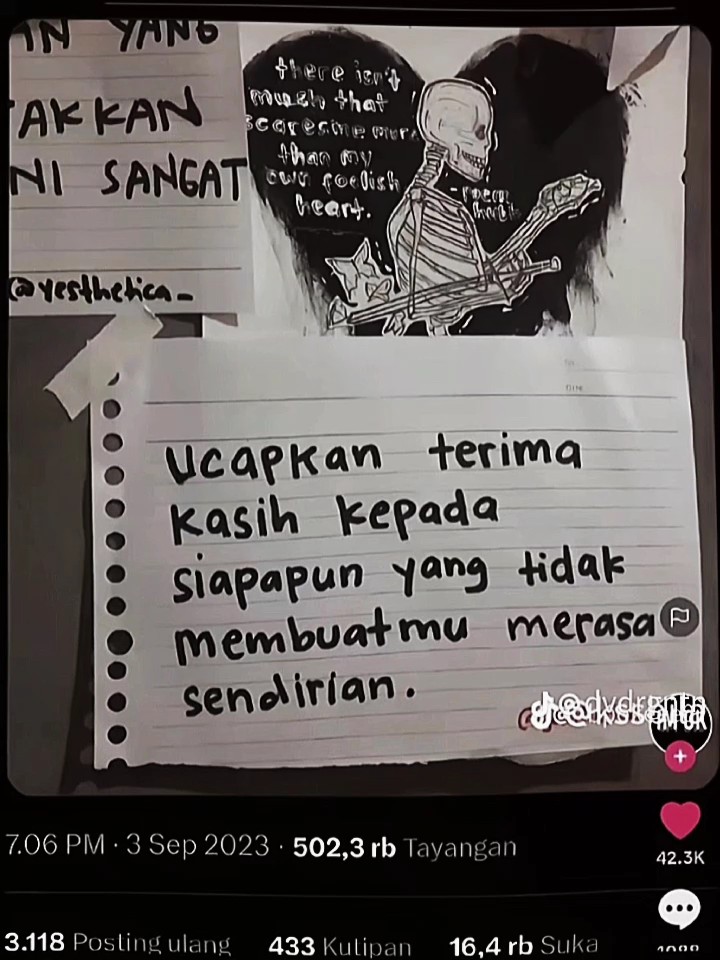 AN YANG
AKKAN
NI SANGAT
@yesthetica_
there isn't
much that
scares me more
than my
own foolish
heart.
ucapkan terima
kasih kepada
siapapun yang tidak
membuatmu merasa
sendirian.
7.06 PM · 3 Sep 2023 · 502,3 rb Tayangan
42.3K
3.118 Posting ulang 433 Kutipan 16,4 rb Suka